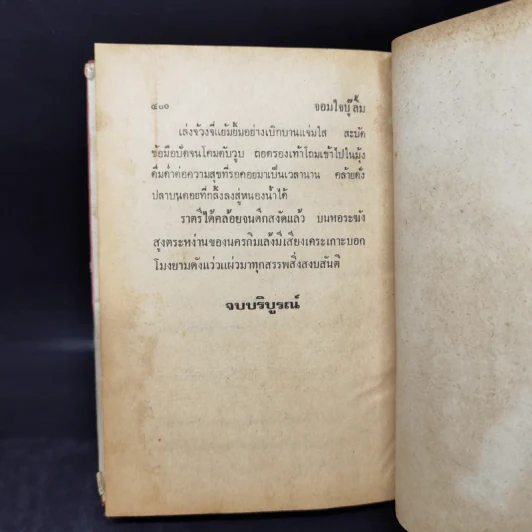 ๕๐๐ จอมใจบู๊ลิ้ม
เล่งจ้วงจี่แย้มยิ้มอย่างเบิกบานแจ่มใส สะบัด
ข้อมือปัดจนโคมดับวูบ ถอดรองเท้าโถมเข้าไปในมุ้ง
ดื่มด่ำต่อความสุขที่รอคอยมาเป็นเวลานาน คล้ายดั่ง
ปลาบนดอยที่กลิ้งลงสู่หนองน้ำได้
ราตรีได้คล้อยจนดึกสงัดแล้ว บนหอระฆัง
สูงตระหง่านของนครกิมเล้งมีเสียงเคาะเกราะบอก
โมงยามดังแว่วแผ่วมาทุกสรรพสิ่งสงบสันติ
จบบริบูรณ์